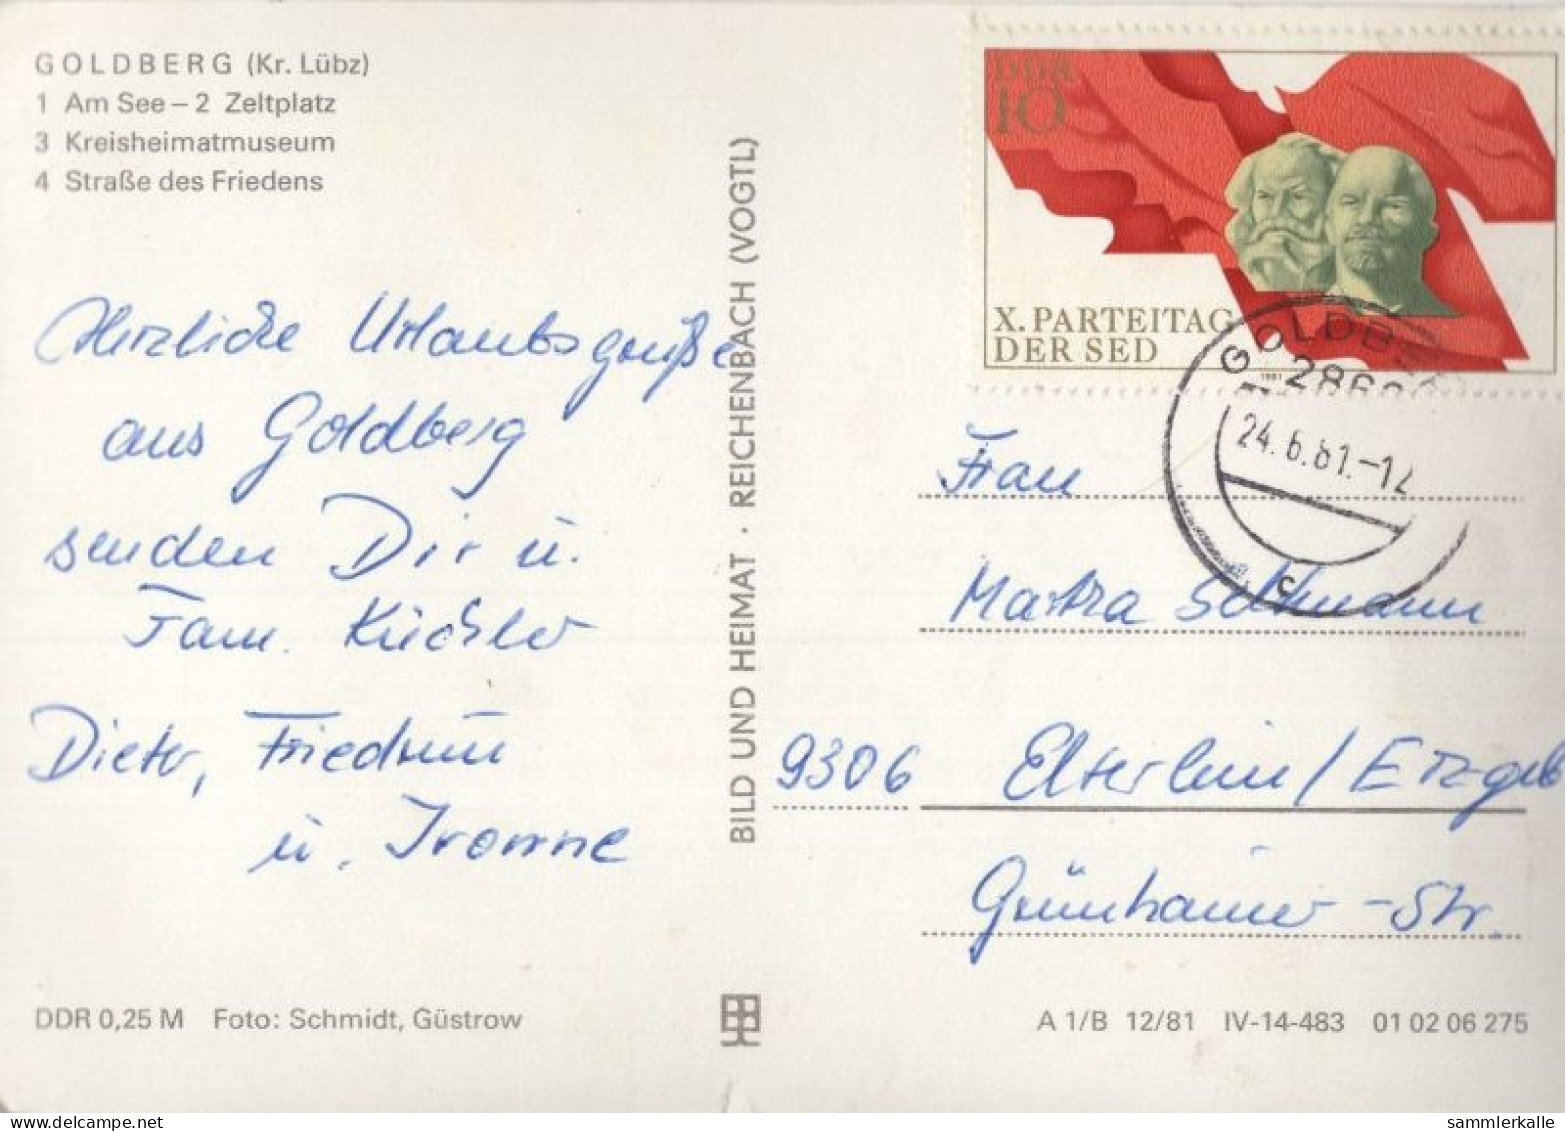 GOLDBERG (Kr. Lübz)
1 Am See – 2 Zeltplatz
3 Kreisheimatmuseum
4 Straße des Friedens
Herzliche Urlaubsgrüße
aus Goldberg
senden Dir u.
Fam. Küchler
Dieter, Friedrun
u. Ivonne
DDR 0,25 M Foto: Schmidt, Güstrow
BILD UND HEIMAT · REICHENBACH (VOGTL)
DDR
10
X. PARTEITAG
DER SED
1981
GOLDBERG
286
24.6.81.-12
c
Frau
Martha
9306 Elterlein/Erzgeb
Grünhainer-Str.
A 1/B 12/81 IV-14-483 01 02 06 275
sammlerkalle